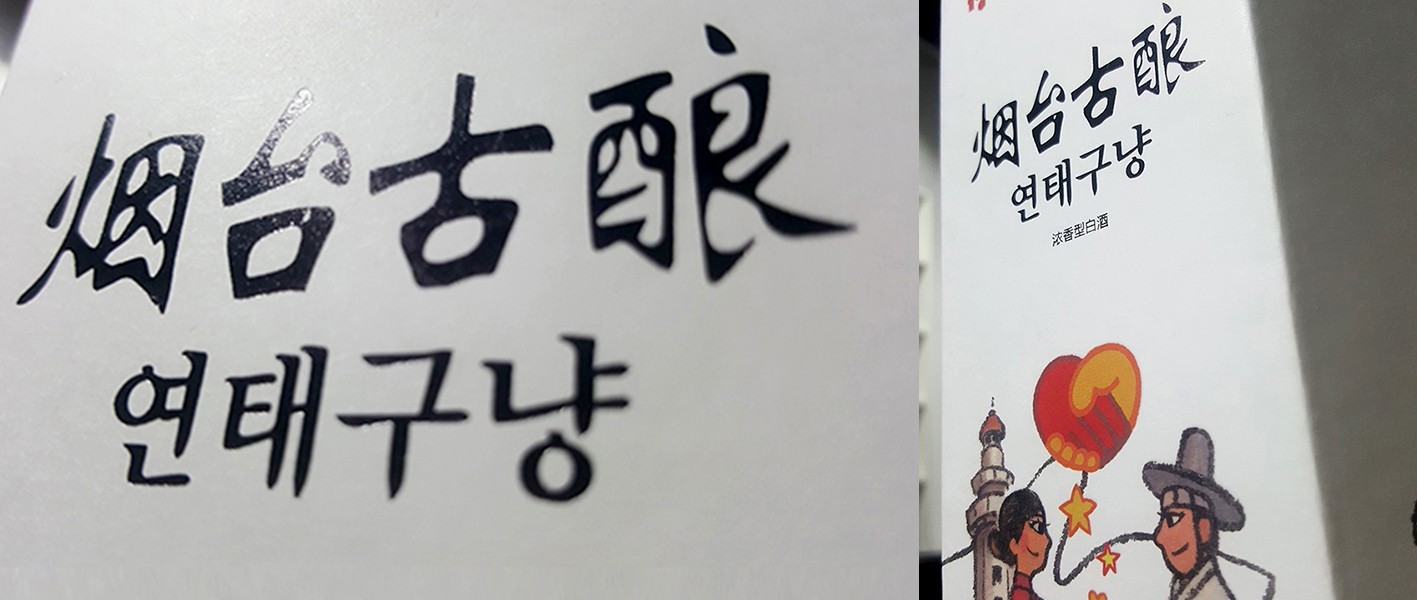 烟台古酿
연태구냥
烟台古酿
연태구냥
浓香型白酒